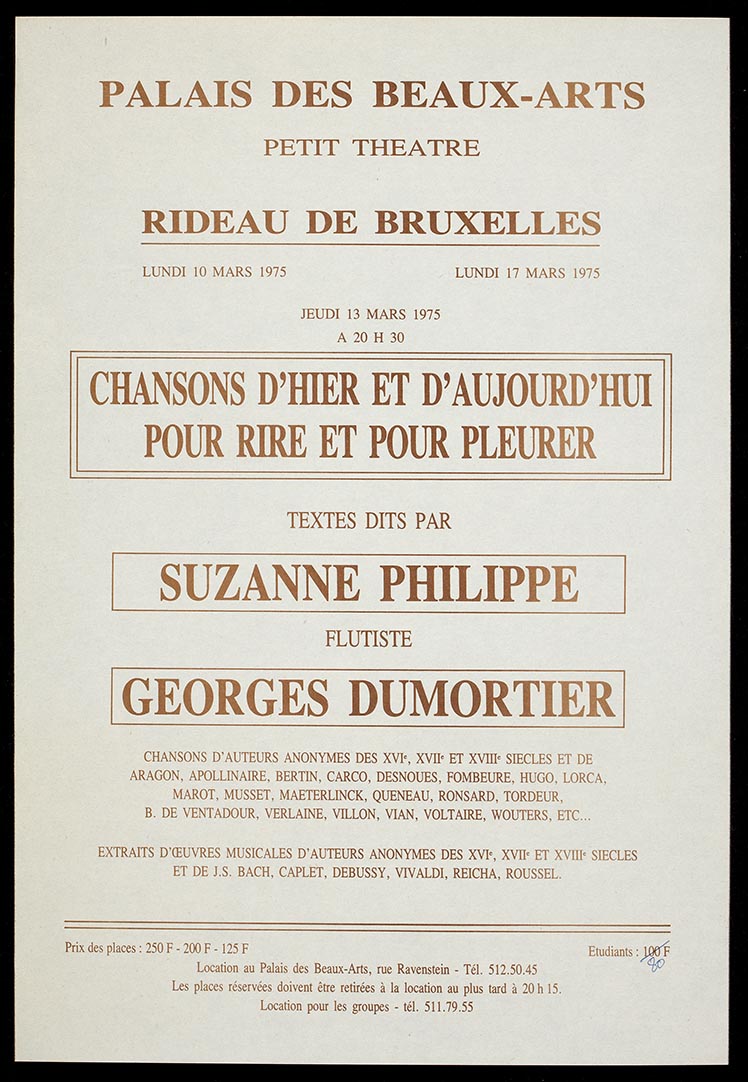 PALAIS DES BEAUX-ARTS
PETIT THEATRE
RIDEAU DE BRUXELLES
LUNDI 10 MARS 1975 LUNDI 17 MARS 1975
JEUDI 13 MARS 1975
A 20 H 30
CHANSONS D'HIER ET D'AUJOURD'HUI
POUR RIRE ET POUR PLEURER
TEXTES DITS PAR
SUZANNE PHILIPPE
FLUTISTE
GEORGES DUMORTIER
CHANSONS D'AUTEURS ANONYMES DES XVIe, XVIIe ET XVIIIe SIECLES ET DE
ARAGON, APOLLINAIRE, BERTIN, CARCO, DESNOUES, FOMBEURE, HUGO, LORCA,
MAROT, MUSSET, MAETERLINCK, QUENEAU, RONSARD, TORDEUR,
B. DE VENTADOUR, VERLAINE, VILLON, VIAN, VOLTAIRE, WOUTERS, ETC...
EXTRAITS D'ŒUVRES MUSICALES D'AUTEURS ANONYMES DES XVIe, XVIIe ET XVIIIe SIECLES
ET DE J.S. BACH, CAPLET, DEBUSSY, VIVALDI, REICHA, ROUSSEL.
Prix des places : 250 F - 200 F - 125 F Etudiants : 100 F
80
Location au Palais des Beaux-Arts, rue Ravenstein - Tél. 512.50.45
Les places réservées doivent être retirées à la location au plus tard à 20 h 15.
Location pour les groupes - tél. 511.79.55